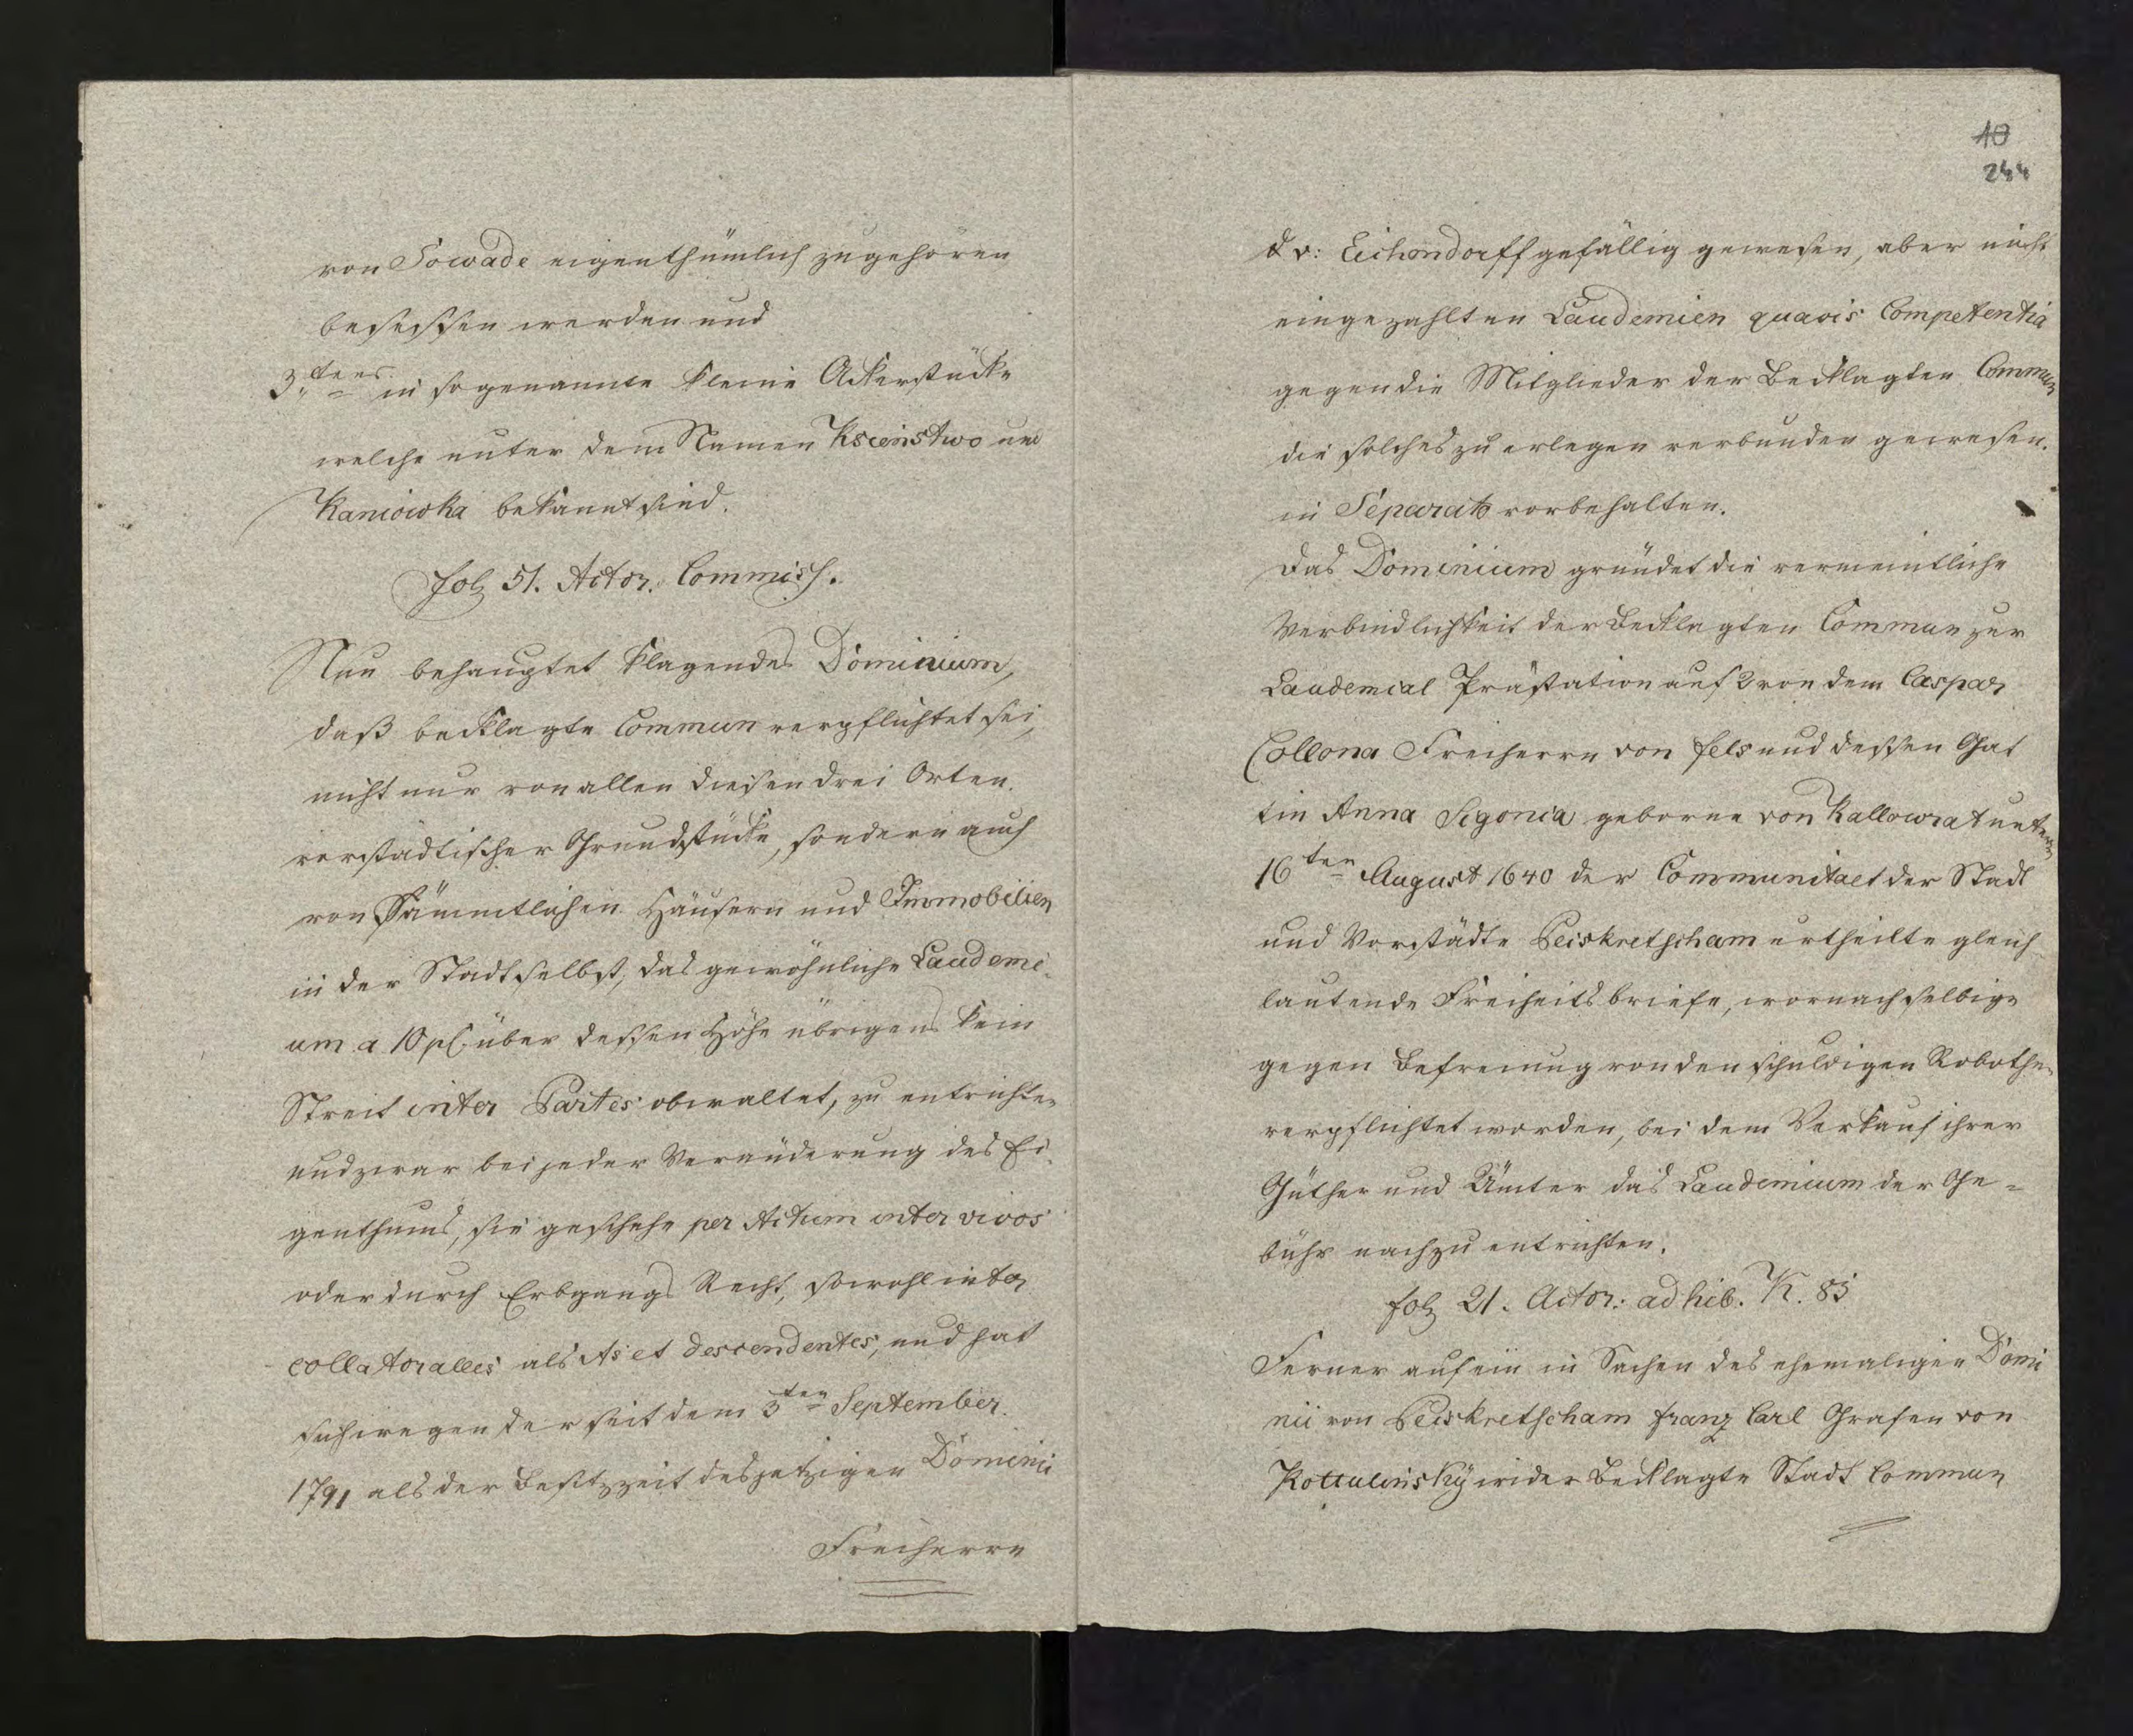 von Sowade eigenthümlich zugehören
besessen werden und
3,tens in sogenannte kleine Ackerstücke
welche unter dem Namen Kscinstwo und
Kaniowka bekannt sind.
fol 51. Actor. Commiss.
Nun behauptet klagendes Dominium,
daß beklagte Commun verpflichtet sei,
nicht nur von allen diesen drei Orten
vorstädtischer Grundstücke, sondern auch
von Sämmtlichen Häusern und Immobilien
in der Stadt selbst, das gewöhnliche Laudemi-
um a 10 pC. über dessen Höhe übrigens kein
Streit inter Partes obwaltet, zu entrichten
und zwar bei jeder Veränderung des Ei-
genthums, sie geschehe per Actum inter vivos
oder durch Erbgangs Recht, sowohl inter
collatoralles als As et descendentes, und hat
sich wegen der seit dem 3ten September
1791 als der Besitzzeit des jetzigen Dominii
Freiherrn
10
244
d v: Eichendorff gefällig gewesen, aber nicht
eingezahlten Laudemien quavis Competentia
gegen die Mitglieder der Beklagten Commun
die solches zu erlegen verbunden gewesen.
in Separato vorbehalten.
Das Dominium gründet die vermeintliche
Verbindlichkeit der Beklagten Commun zur
Laudemial Prästation auf 2 von dem Caspar
Collona Freiherrn von Fels und dessen Gat
tin Anna Segonia geborne von Kallowrat unterm
16ten August 1640 der Communitaet der Stadt
und Vorstädte Peiskretscham ertheilte gleich
lautende Freiheitsbriefe, wornach selbige
gegen Befreiung von den schuldigen Robothen
verpflichtet worden, bei dem Verkauf ihrer
Güther und Ämter das Laudemium der Ge=
bühr nach zu entrichten.
fol 21. Actor: adhib. K. 83
Ferner auf ein in Sachen des ehemaligen Domi
nii von Peiskretscham Franz Carl Grafen von
Kottulinsky wider Beklagte Stadt Commun